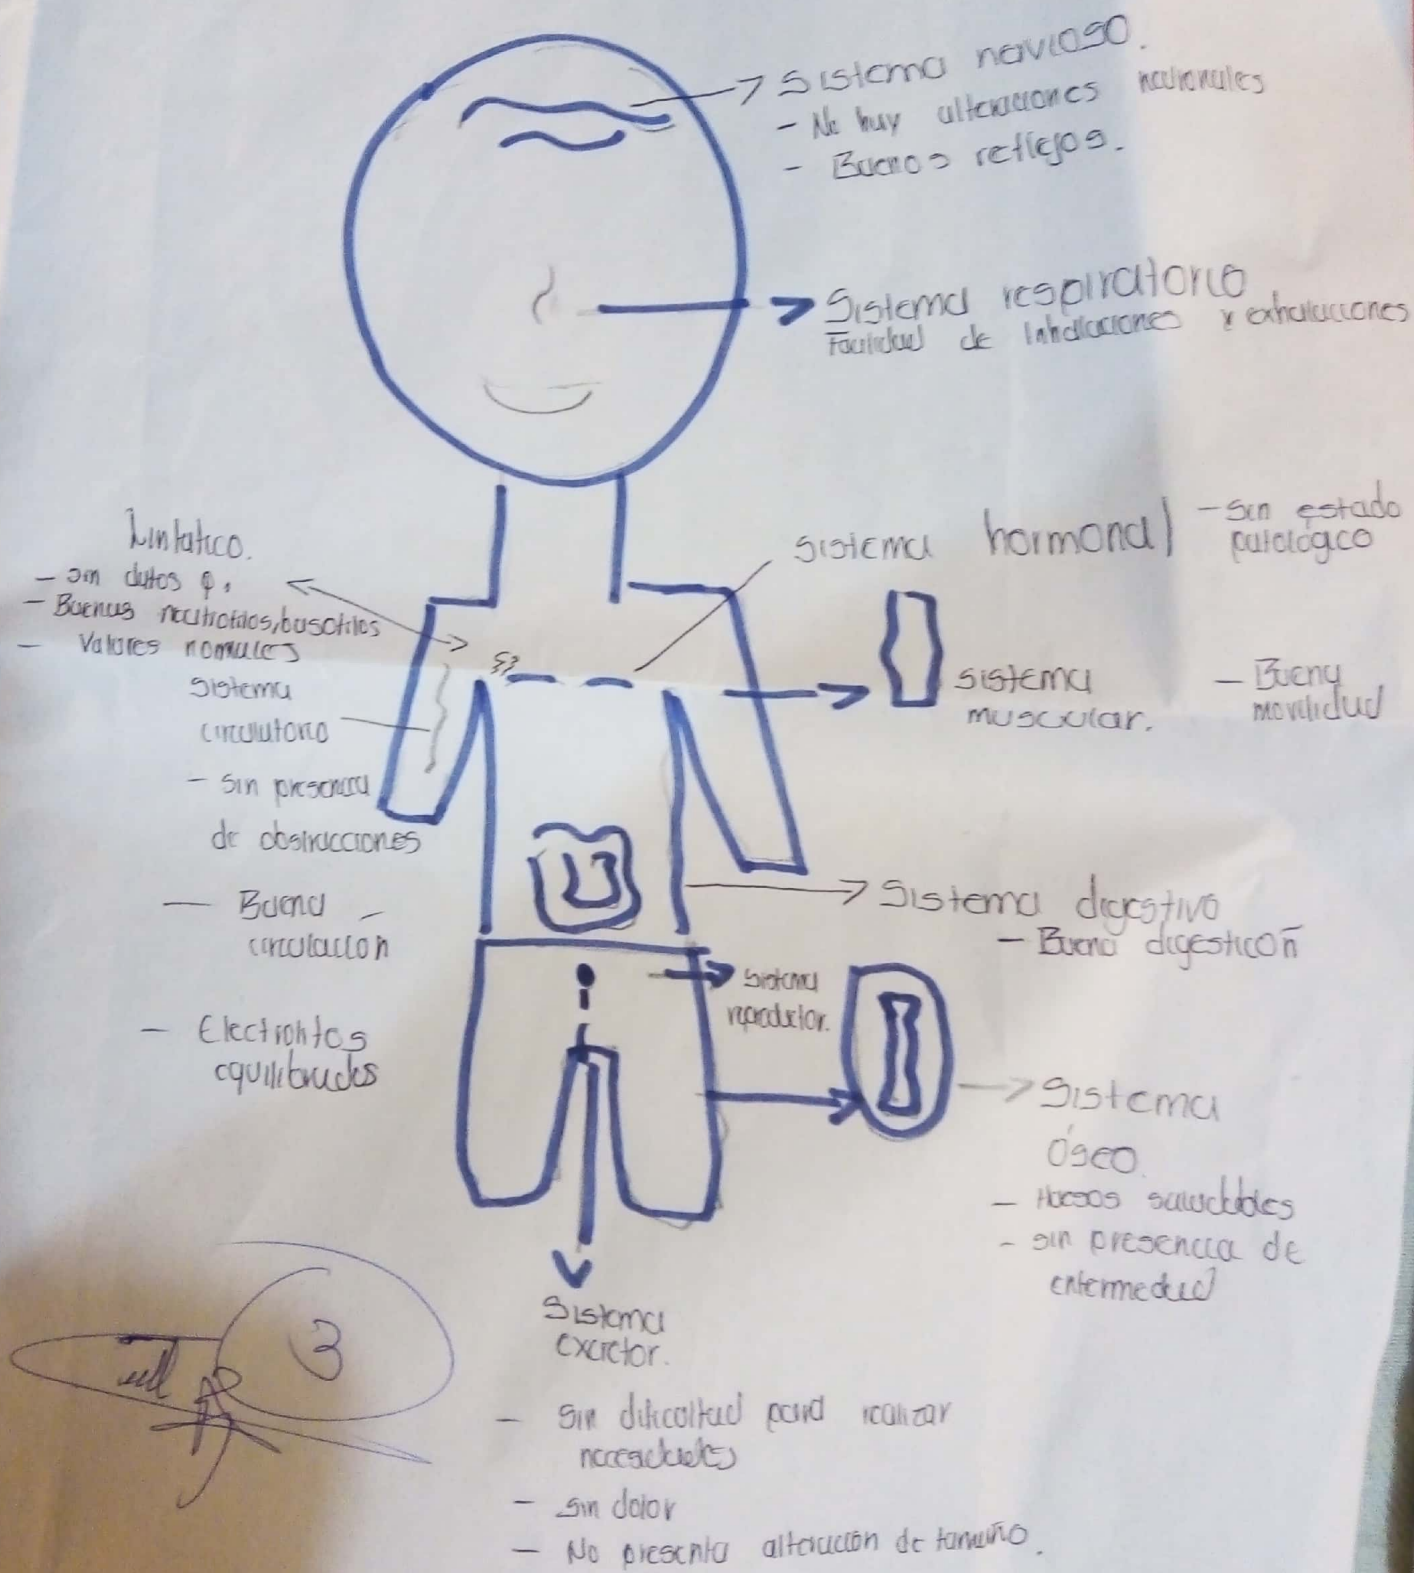 Sistema nervioso.
- No hay alteraciones neuronales
- Buenos reflejos.
Sistema respiratorio
Facilidad de inhalaciones y exhalaciones
Linfatico.
- Sin datos
- Buenas neutrofilos, basofilos
- Valores normales
Sistema hormonal
- Sin estado
patológico
Sistema
muscular.
- Buena
movilidad
Sistema
circulatorio
- Sin presencia
de obstrucciones
- Buena
circulación
- Electrolitos
equilibrados
Sistema digestivo
- Buena digestión
Sistema
reproductor.
Sistema
óseo.
- Huesos saludables
- Sin presencia de
enfermedad
Sistema
excretor.
- Sin dificultad para realizar
necesidades
- Sin dolor
- No presenta alteración de tamaño.
3